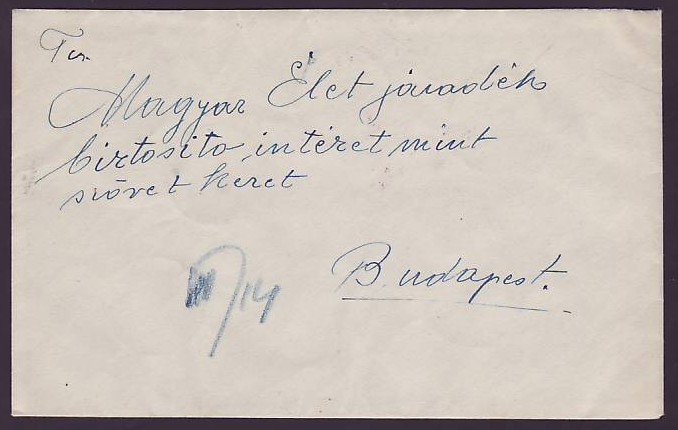 Tes.
Magyar Élet járadék
birtosito intéret mint
szövet keret
Budapest.
/14